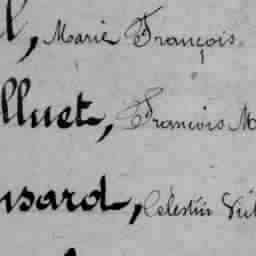 l, Marie François
lluet, François M
nsard, Célestin Vic